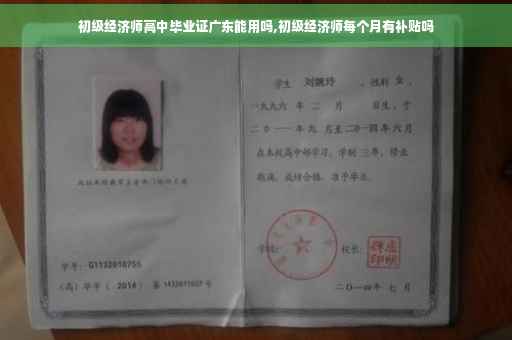 初级经济师高中毕业证广东能用吗,初级经济师每个月有补贴吗
学生 刘婉玲 ，性别 女 ，
一九九六 年 二 月 日生，于
二〇一一年 九 月至二〇一四年 六 月
在本校高中部学习，学制 三年，修业
期满，成绩合格，准予毕业。
学校： 校长：
学号：G1132010755
（高）毕字（ 2014 ）第 1432011027 号
二〇一四年 七 月